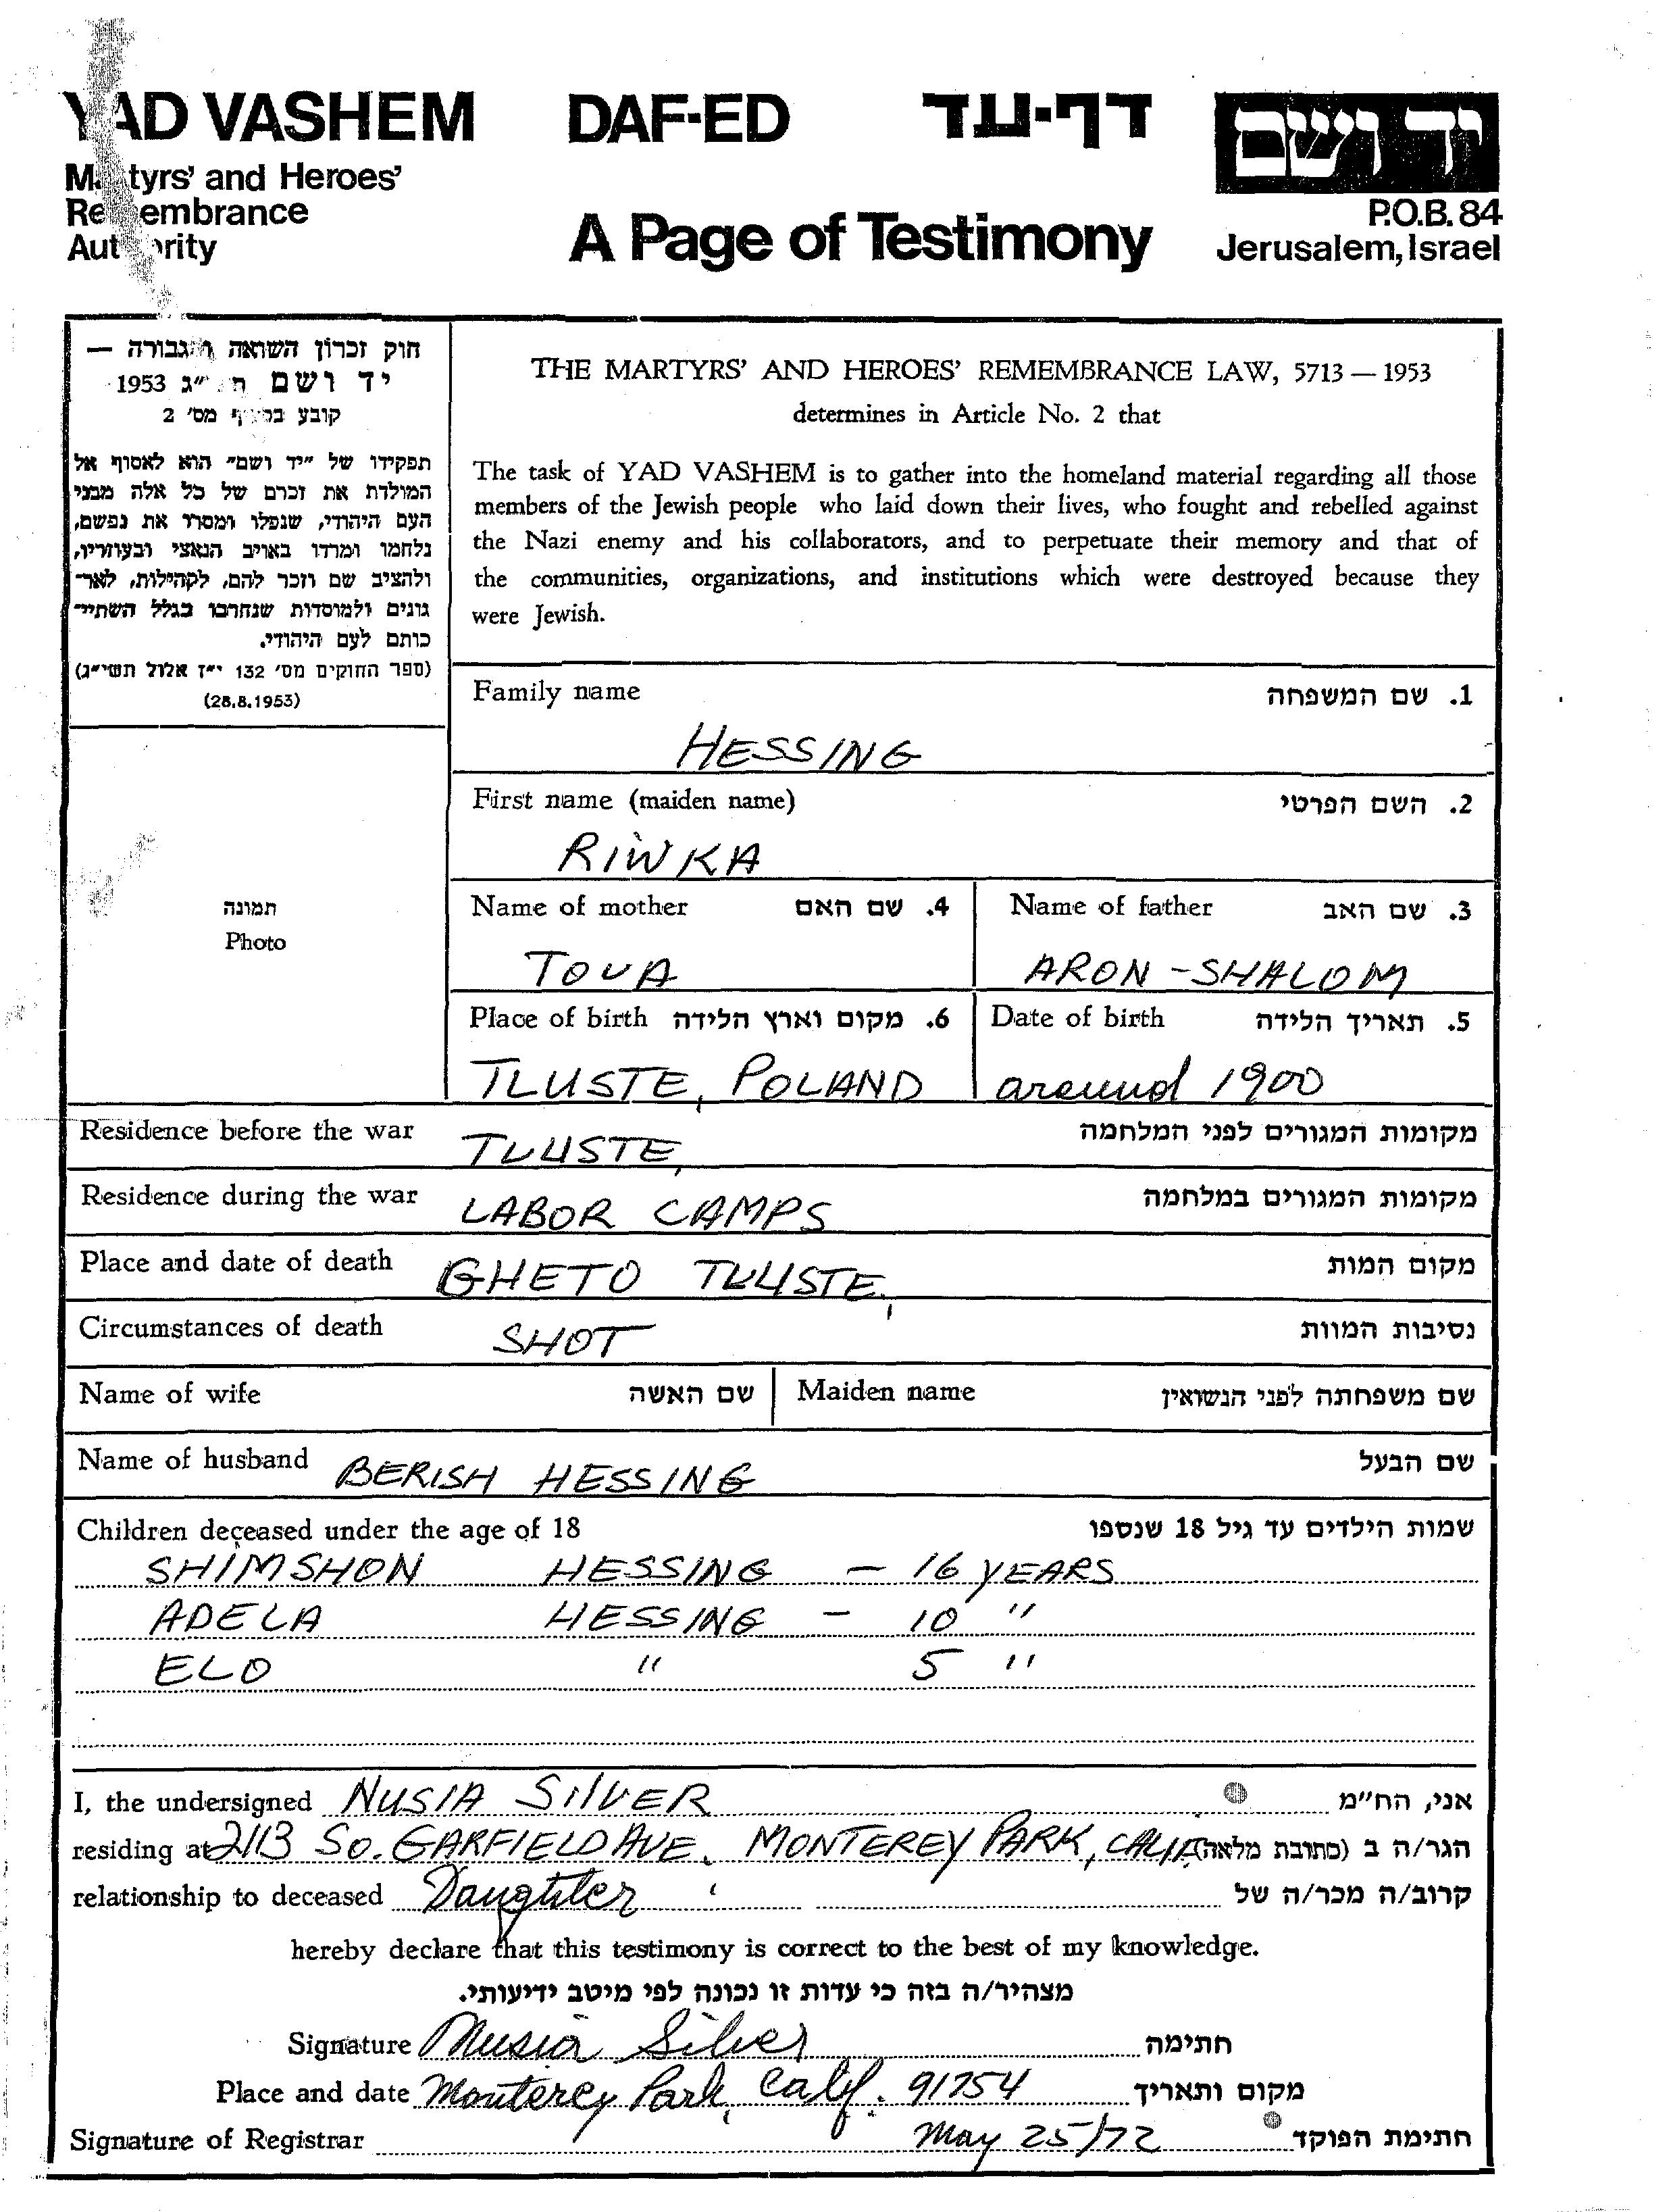 YAD VASHEM DAF-ED דף-עד יד ושם
Martyrs' and Heroes'
Remembrance
Authority
A Page of Testimony
P.O.B. 84
Jerusalem, Israel
חוק זכרון השואה והגבורה —
יד ושם תשי"ג 1953
קובע בסעיף מס' 2
תפקידו של "יד ושם" הוא לאסוף אל
המולדת את זכרם של כל אלה מבני
העם היהודי, שנפלו ומסרו את נפשם,
נלחמו ומרדו באויב הנאצי ובעוזריו,
ולהציב שם וזכר להם, לקהילות, לאר-
גונים ולמוסדות שנחרבו בגלל השתיי-
כותם לעם היהודי.
(ספר החוקים מס' 132 י"ז אלול תשי"ג)
(28.8.1953)
תמונה
Photo
THE MARTYRS' AND HEROES' REMEMBRANCE LAW, 5713 — 1953
determines in Article No. 2 that
The task of YAD VASHEM is to gather into the homeland material regarding all those
members of the Jewish people who laid down their lives, who fought and rebelled against
the Nazi enemy and his collaborators, and to perpetuate their memory and that of
the communities, organizations, and institutions which were destroyed because they
were Jewish.
Family name 1. שם המשפחה
HESSING
First name (maiden name) 2. השם הפרטי
RIWKA
Name of mother 4. שם האם Name of father 3. שם האב
TOVA ARON - SHALOM
Place of birth 6. מקום וארץ הלידה Date of birth 5. תאריך הלידה
TLUSTE, POLAND around 1900
Residence before the war TLUSTE, מקומות המגורים לפני המלחמה
Residence during the war LABOR CAMPS מקומות המגורים במלחמה
Place and date of death GHETO TLUSTE, מקום המות
Circumstances of death SHOT נסיבות המוות
Name of wife שם האשה Maiden name שם משפחתה לפני הנשואין
Name of husband BERISH HESSING שם הבעל
Children deceased under the age of 18 שמות הילדים עד גיל 18 שנספו
SHIMSHON HESSING - 16 YEARS
ADELA HESSING - 10 "
ELO " 5 "
I, the undersigned NUSIA SILVER אני, הח"מ
residing at 2113 SO. GARFIELD AVE. MONTEREY PARK, CALIF. הגר/ה ב (כתובת מלאה)
relationship to deceased Daughter קרוב/ה מכר/ה של
hereby declare that this testimony is correct to the best of my knowledge.
מצהיר/ה בזה כי עדות זו נכונה לפי מיטב ידיעותי.
Signature Nusia Silver חתימה
Place and date Monterey Park, Calif. 91754 מקום ותאריך
Signature of Registrar May 25/72 חתימת הפוקד